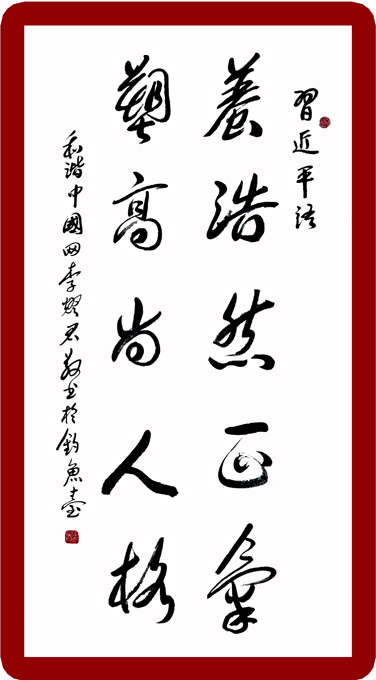 習近平語
養浩然正氣
塑高尚人格
和諧中國网李耀君敬书於釣魚臺